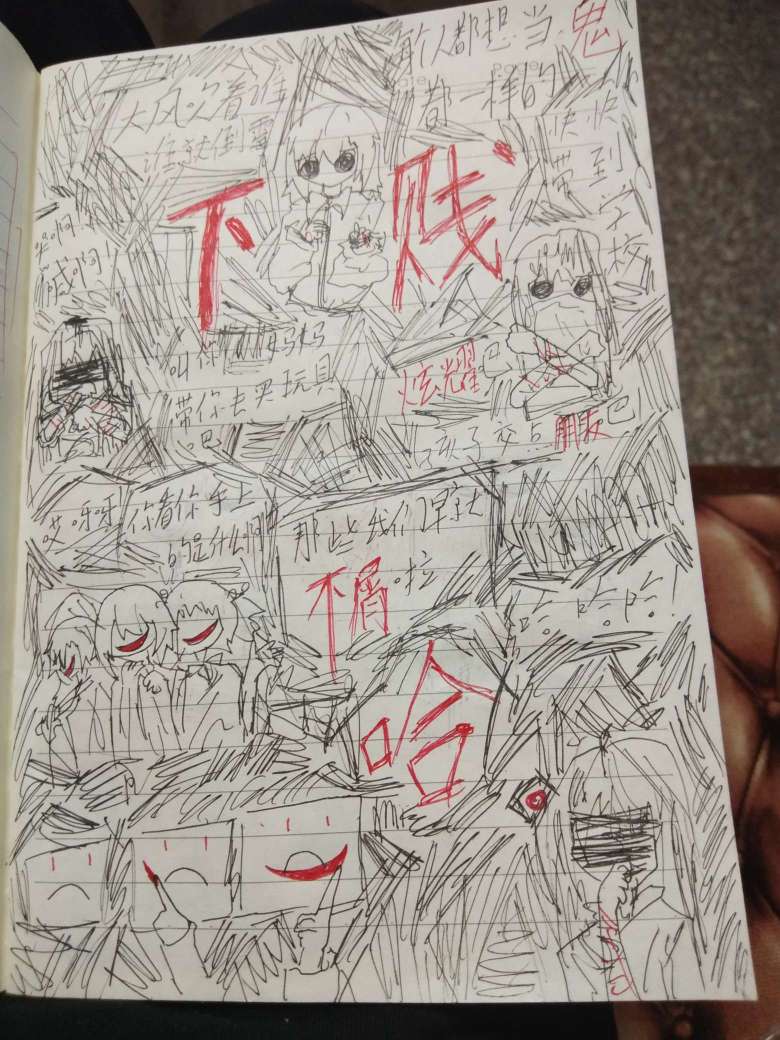 每个人都想当鬼
都一样的
大风吹着谁
谁就倒霉
快快
带到
学校
下贱
来啊!
喊啊!
叫你的妈妈
带你去买玩具
吧
炫耀吧
孩子交点朋友吧
哎呀呀
你看你手上
的是什么啊
那些我们早就
不屑啦
哈哈哈!
哈